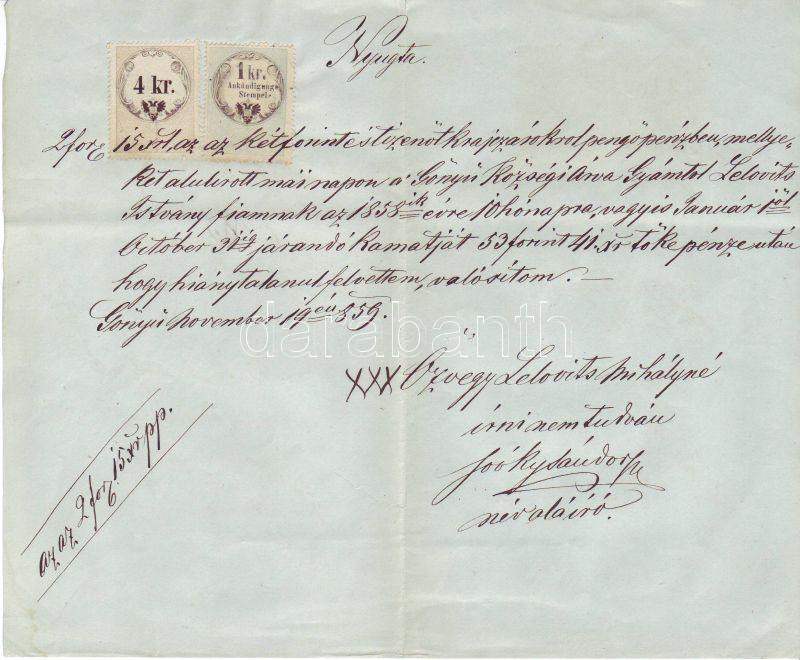 Nyugta.
4 kr.
1 kr.
Ankündigungs
Stempel
2 for 15 xrol, az az két forint és tizenöt krajczárokrol pengőpénzben, mellye-
ket alulirott mái napon a Gőnyűi Községi Árva Gyámtol Lelovits
István fiamnak az 1858ik évre 10 hónapra, vagyis Január 1ől
October 31ig járandó kamatját 53 forint 41 xr tőke pénze után
hogy hiánytalanul felvettem, valósitom. —
Gőnyű november 19én 859.
XXX Özvegy Lelovits Mihályné
irni nem tudván
Soóky Sándor
név aláiró.
az az 2 for 15 xr pp.
darabanth